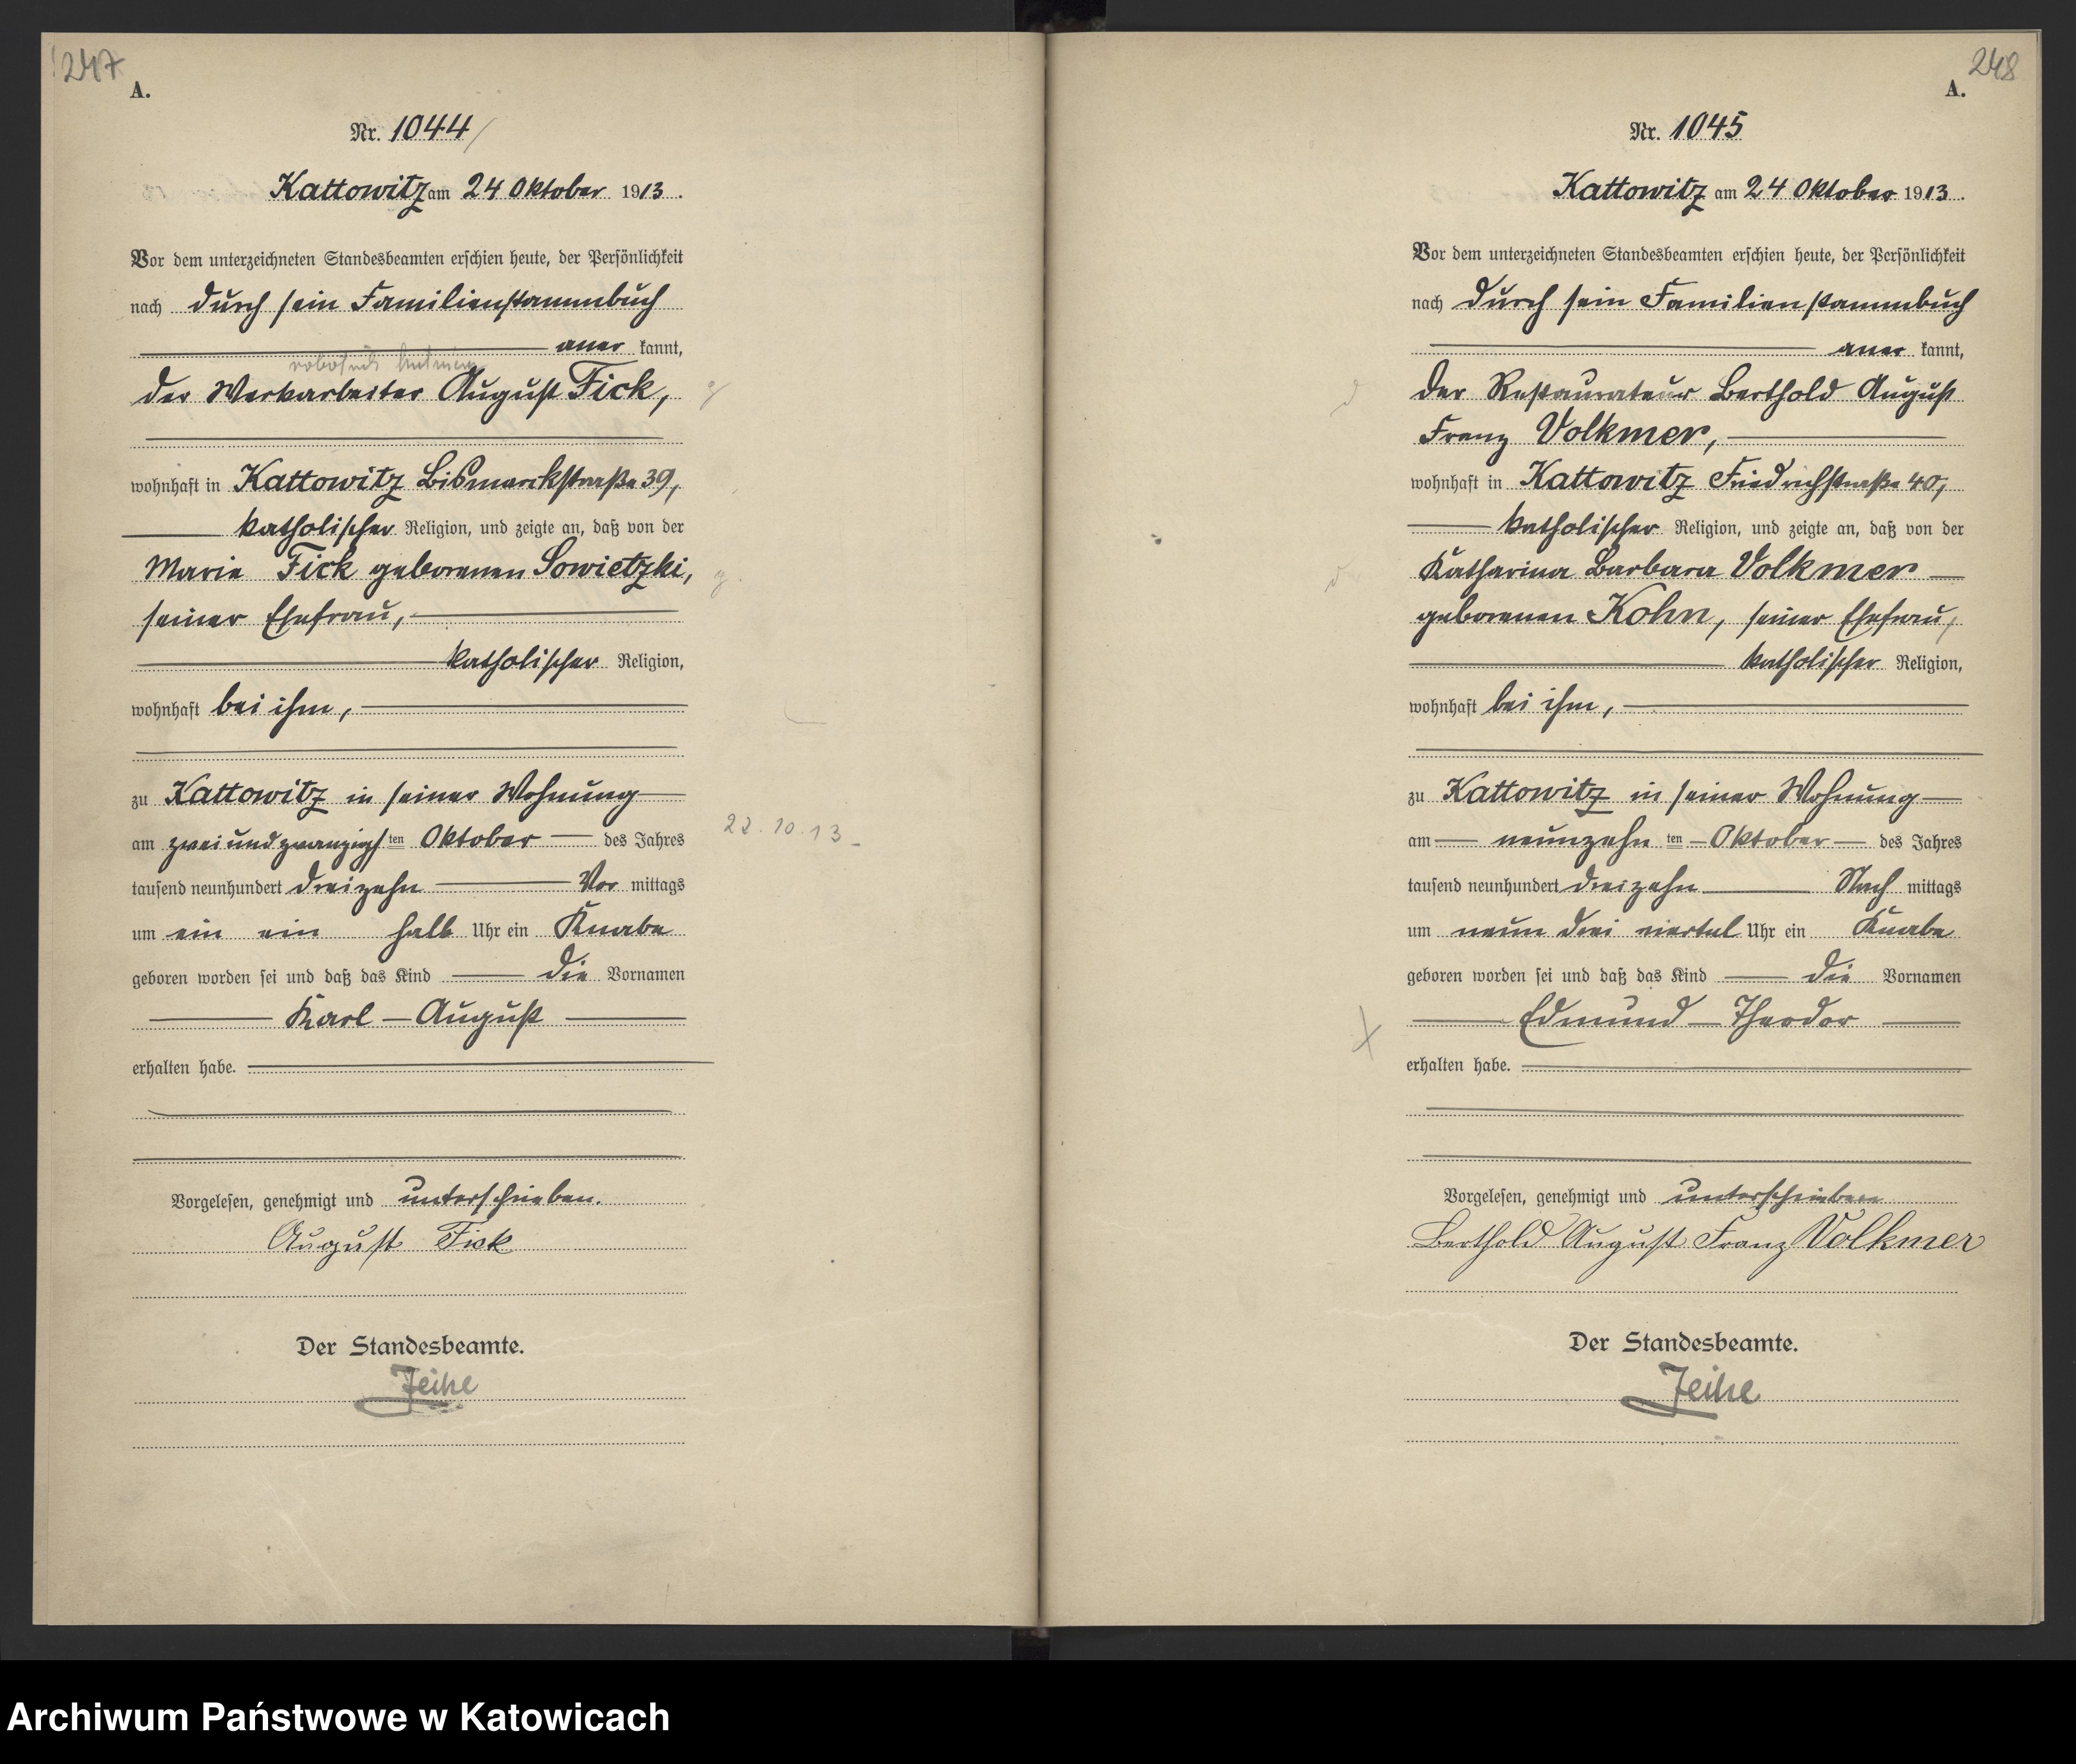 247
A.
Nr. 1044
Kattowitz am 24 Oktober 1913.
Vor dem unterzeichneten Standesbeamten erschien heute, der Persönlichkeit
nach durch sein Familienstammbuch
aner kannt,
der Werkarbeiter August Fick,
wohnhaft in Kattowitz Bismarckstraße 39,
katholischer Religion, und zeigte an, daß von der
Marie Fick geborenen Sowietzki,
seiner Ehefrau,
katholischer Religion,
wohnhaft bei ihm,
zu Kattowitz in seiner Wohnung
am zweiundzwanzigsten Oktober des Jahres
22.10.13
tausend neunhundert dreizehn Vor mittags
um ein ein halb Uhr ein Knabe
geboren worden sei und daß das Kind die Vornamen
Karl – August
erhalten habe.
Vorgelesen, genehmigt und unterschrieben.
August Fick
Der Standesbeamte.
248
A.
Nr. 1045
Kattowitz am 24 Oktober 1913.
Vor dem unterzeichneten Standesbeamten erschien heute, der Persönlichkeit
nach durch sein Familienstammbuch
aner kannt,
der Restaurateur Berthold August
Franz Volkmer,
wohnhaft in Kattowitz Friedrichstraße 40,
katholischer Religion, und zeigte an, daß von der
Katharina Barbara Volkmer
geborenen Kohn, seiner Ehefrau,
katholischer Religion,
wohnhaft bei ihm,
zu Kattowitz in seiner Wohnung
am neunzehn ten Oktober des Jahres
tausend neunhundert dreizehn Nach mittags
um neun drei viertel Uhr ein Knabe
geboren worden sei und daß das Kind die Vornamen
Edmund – Theodor
erhalten habe.
Vorgelesen, genehmigt und unterschrieben
Berthold August Franz Volkmer
Der Standesbeamte.
Archiwum Państwowe w Katowicach